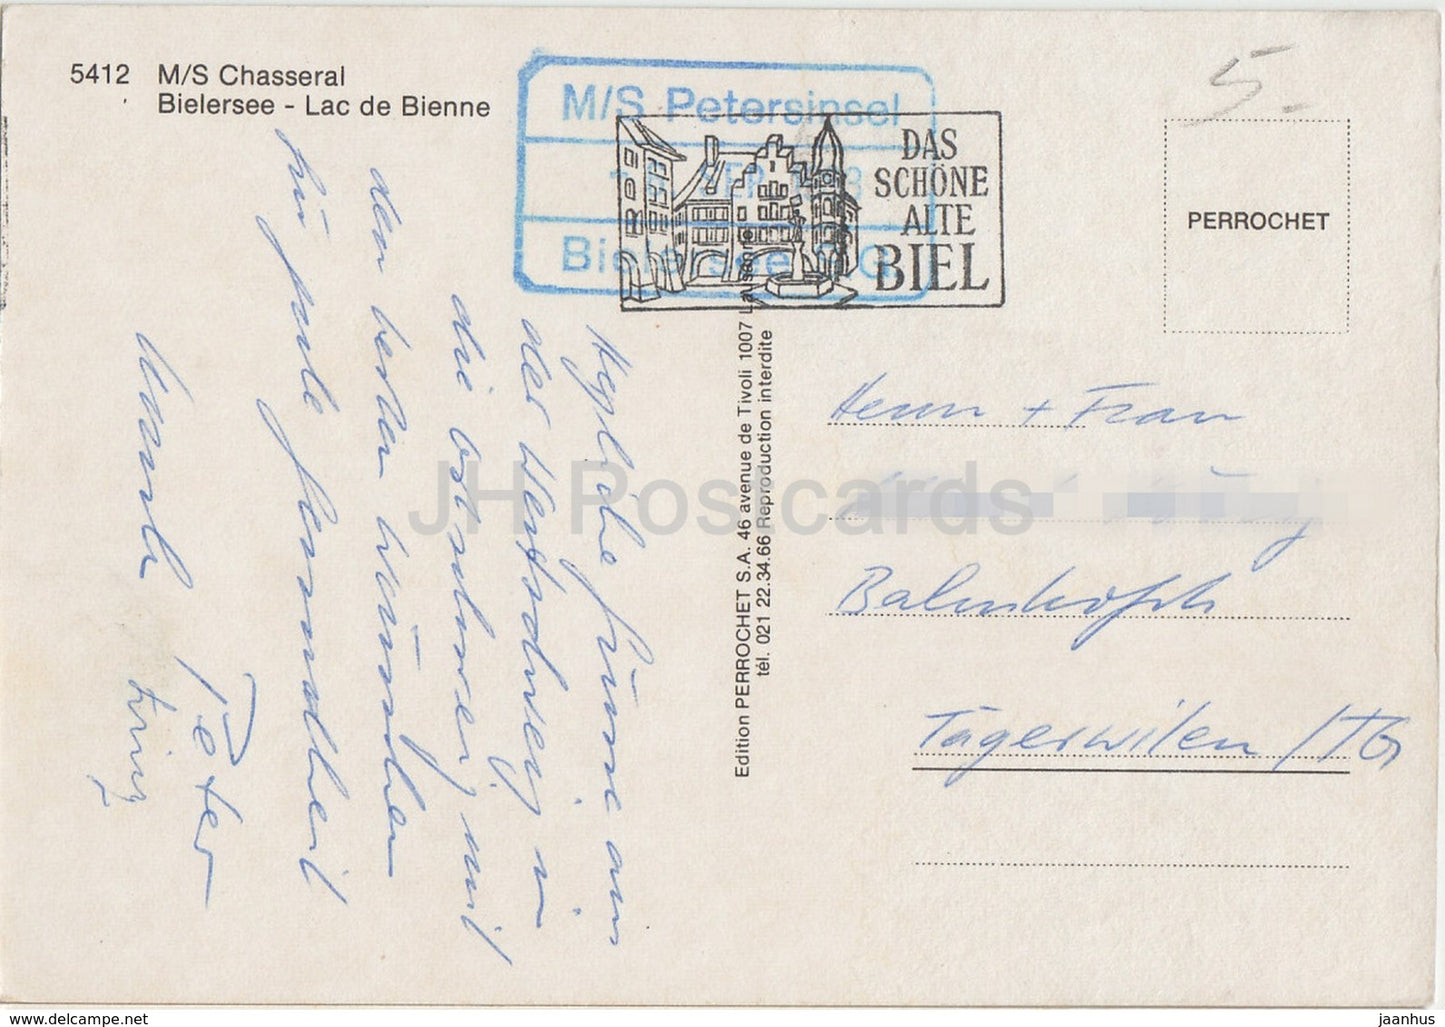 5412 M/S Chasseral
Bielersee - Lac de Bienne
M/S Petersinsel
SEP
Bielersee
DAS
SCHÖNE
ALTE
BIEL
5.-
PERROCHET
Edition PERROCHET S.A. 46 avenue de Tivoli 1007 Lausanne
tél. 021 22.34.66 Reproduction interdite
Herrn + Frau
Bahnhofstr
Tägerwilen /TG
Herzliche Grüsse aus
der Westschweiz u
die Ostschweiz mit
den besten Wünschen
für gute Gesundheit
Peter
JH Postcards
www.delcampe.net
jaanhus